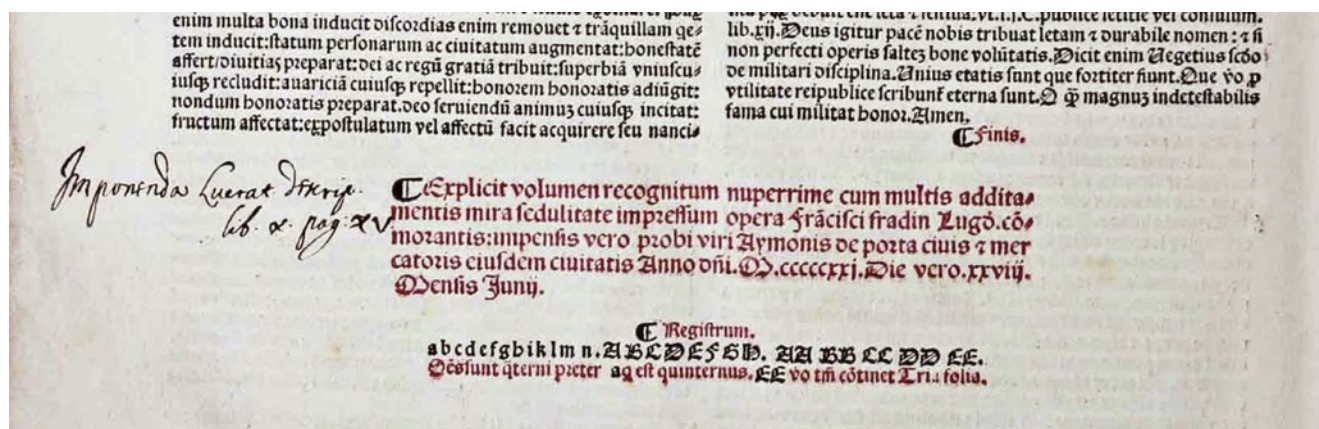 enim multa bona inducit discordias enim remouet ⁊ trãquillam qe⸗
tem inducit:statum personarum ac ciuitatum augmentat:honestatē
affert/diuitias preparat:dei ac regũ gratiã tribuit:superbiã vniuscu⸗
iusqꝫ recludit:auariciã cuiusqꝫ repellit:honorem honoratis adiũgit:
nondum honoratis preparat.deo seruiendũ animuꝫ cuiusqꝫ incitat:
fructum affectat:expostulatum vel affectũ facit acquirere seu nanci⸗
lib.xij.Deus igitur pacē nobis tribuat letam ⁊ durabile nomen:⁊ si
non perfecti operis salteꝫ bone volũtatis.Dicit enim Uegetius scd̃o
de militari disciplina.Unius etatis sunt que fortiter fiunt.Que v̊o ꝓ
vtilitate reipublice scribunt̃ eterna sunt.O q̃ꝫ magnuꝫ indetestabilis
fama cui militat honor.Amen.
¶Finis.
Imponenda
lib. x. pag. xv
¶Explicit volumen recognitum nuperrime cum multis addita⸗
mentis mira sedulitate impressum opera Frãcisci fradin Lugd̃.cõ⸗
morantis:impensis vero probi viri Aymonis de porta ciuis ⁊ mer
catoris eiusdem ciuitatis Anno dñi.M.cccccxxj.Die vero.xxviij.
Mensis Junij.
¶ Registrum.
a b c d e f g h i k l m n.A B C D E F G H. AA BB CC DD EE.
Oẽs sunt q̃terni preter a q est quinternus.EE v̊o tm̃ cõtinet Tria folia.